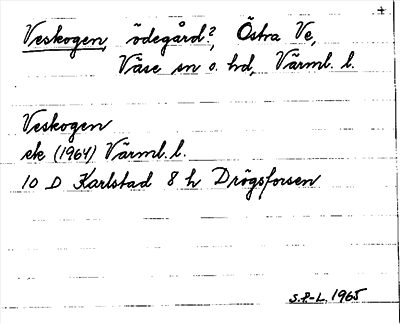 +
Veskogen, ödegård?, Östra Ve,
Väse sn o. hd, Värml. l.
Veskogen
ek (1964) Värml. l.
10 D Karlstad 8 h Drögsforsen
S.P-L. 1965